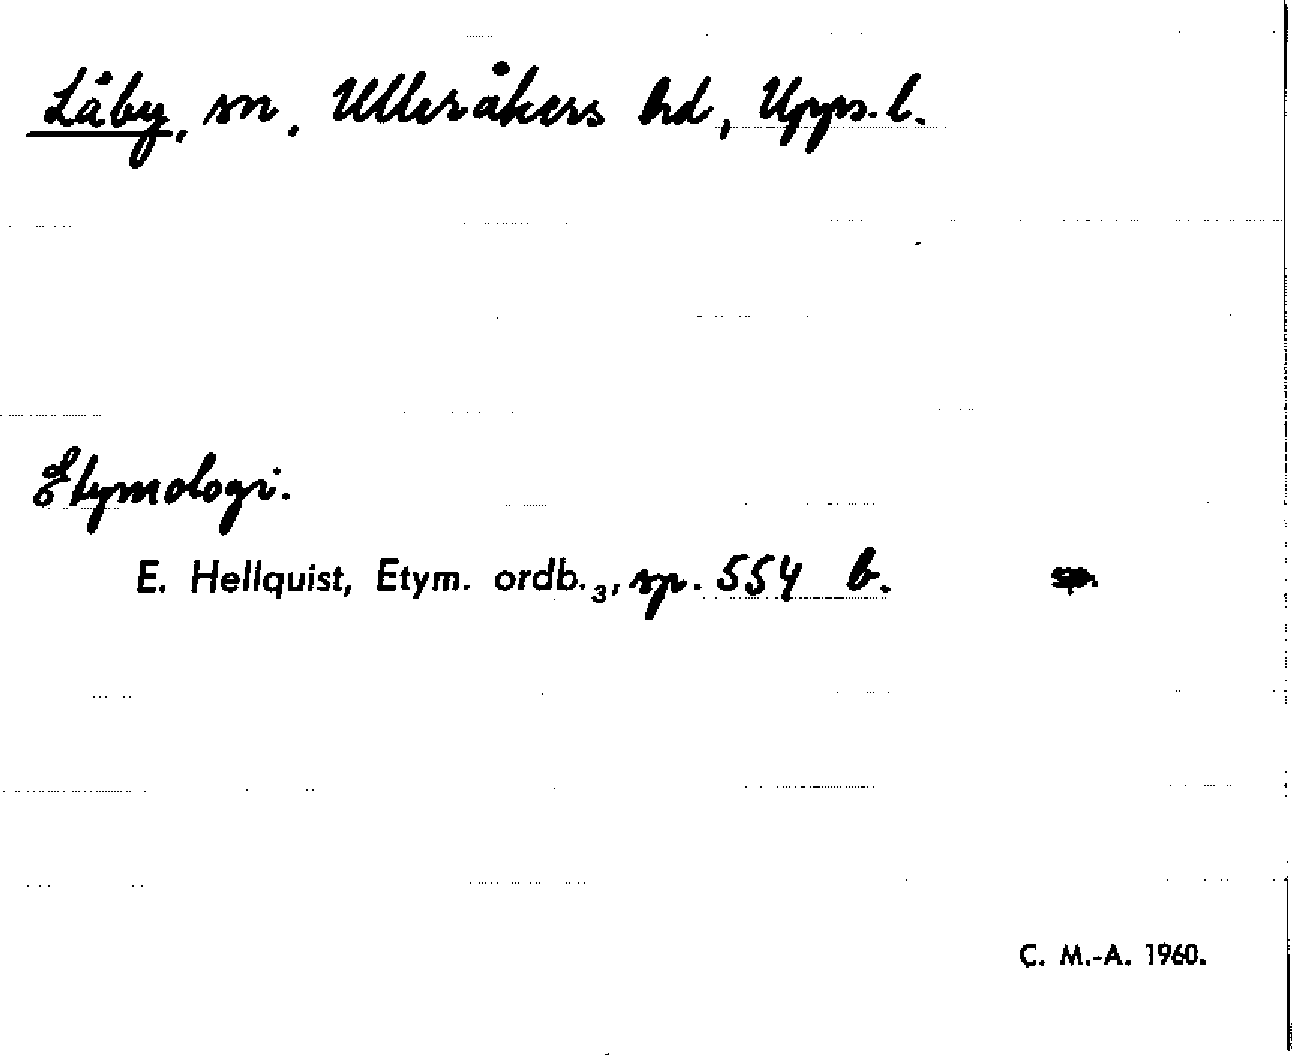 Låby, sn, Ulleråkers hd, Upps. l.
Etymologi.
E. Hellquist, Etym. ordb.₃, sp. 554 b.
C. M.-A. 1960.